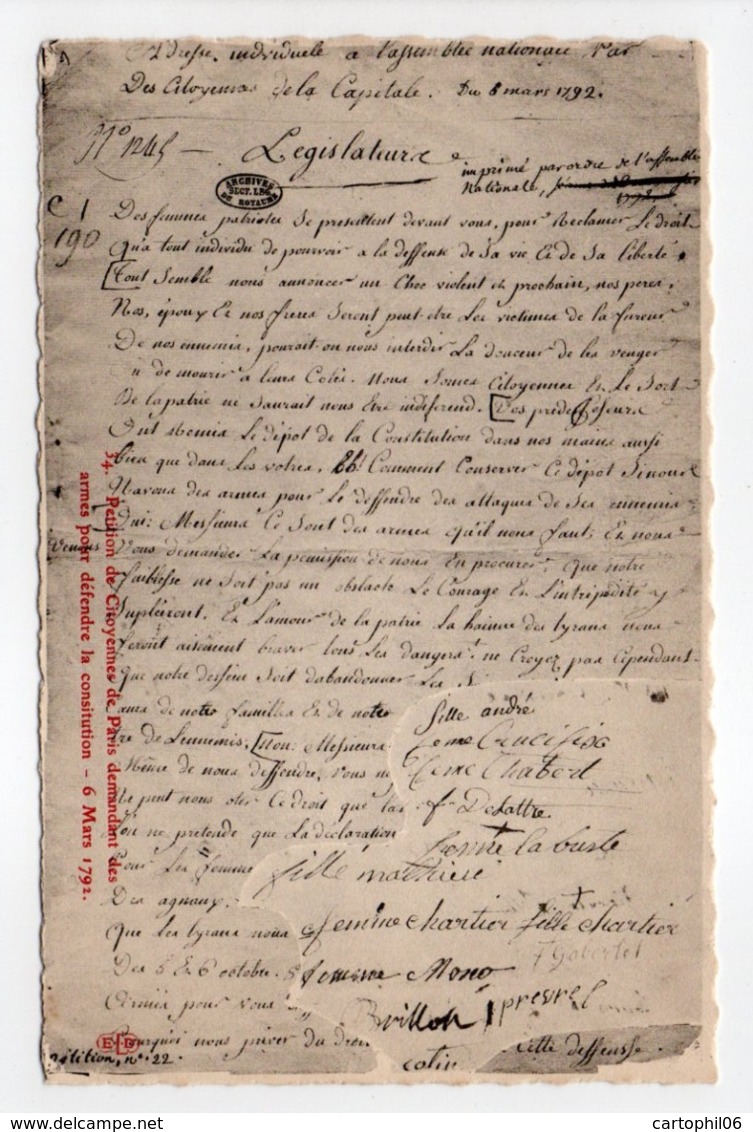 Adresse, individuele a l'assemblée nationale Par
Des Citoyennes de la Capitale. Du 8 mars 1792.
N° 1245 — Législature
imprimé par ordre de l'assemblée
Nationale,
ARCHIVES
SECT. LEG
DU ROYAUME
C I
190
Des femmes patriotes se presentent devant vous, pour Reclamer Le droit
Qu'a tout individu de pourvoir a la deffense de sa vie Et de Sa liberté.
[Tout Semble nous annoncer un Choc violent et prochain, nos peres,
Nos, époux Et nos freres Seront peut-etre Les victimes de la fureur
De nos ennemis, pourait-on nous interdir La douceur de les venger
u de mourir a leurs Cotés. Nous Somes Citoyennes Et Le Sort
De la patrie ne Saurait nous Etre indiferend. [Vos prédecesseurs
Ont Remis Le dépot de la Constitution dans nos mains aussi
bien que dans Les votres. Eh! Comment Conserver Ce dépot Si nous
N'avons des armes pour Le deffendre des attaques de Ses ennemis
Oui: Messieurs Ce Sont des armes qu'il nous faut, Et nous
Venons Vous demander La permission de nous En procurer. Que notre
faiblesse ne Soit pas un obstacle Le Courage Et L'intrépidité y
Supléront. Et L'amour de la patrie La haine des tyrans nous
feront aisément braver tous Les dangers. ne Croyez pas Cependant
Que notre dessein Soit d'abandonner Les S
de notre familles Et de notre
tre de Lennemis. [Non: Messieurs
Même de nous deffendre, vous ne
Ne peut nous oter Ce droit que la
on ne pretende que La déclaration
Pour Les femmes
Des agnaux.
Que les tyrans nous
Des 5 Et 6 octobre.
pour vous
Pourquoi nous priver du droit
fille andré
feme Chabert
fe Delattre
femme la buste
fille mathieu
femme chartier fille chartier
femme Mono
Brillon prevrel
colin
cette deffensse.
pétition, n°. 22.
34. Pétition de Citoyennes de Paris demandant des
armes pour défendre la consitution - 6 Mars 1792.
cartophil06